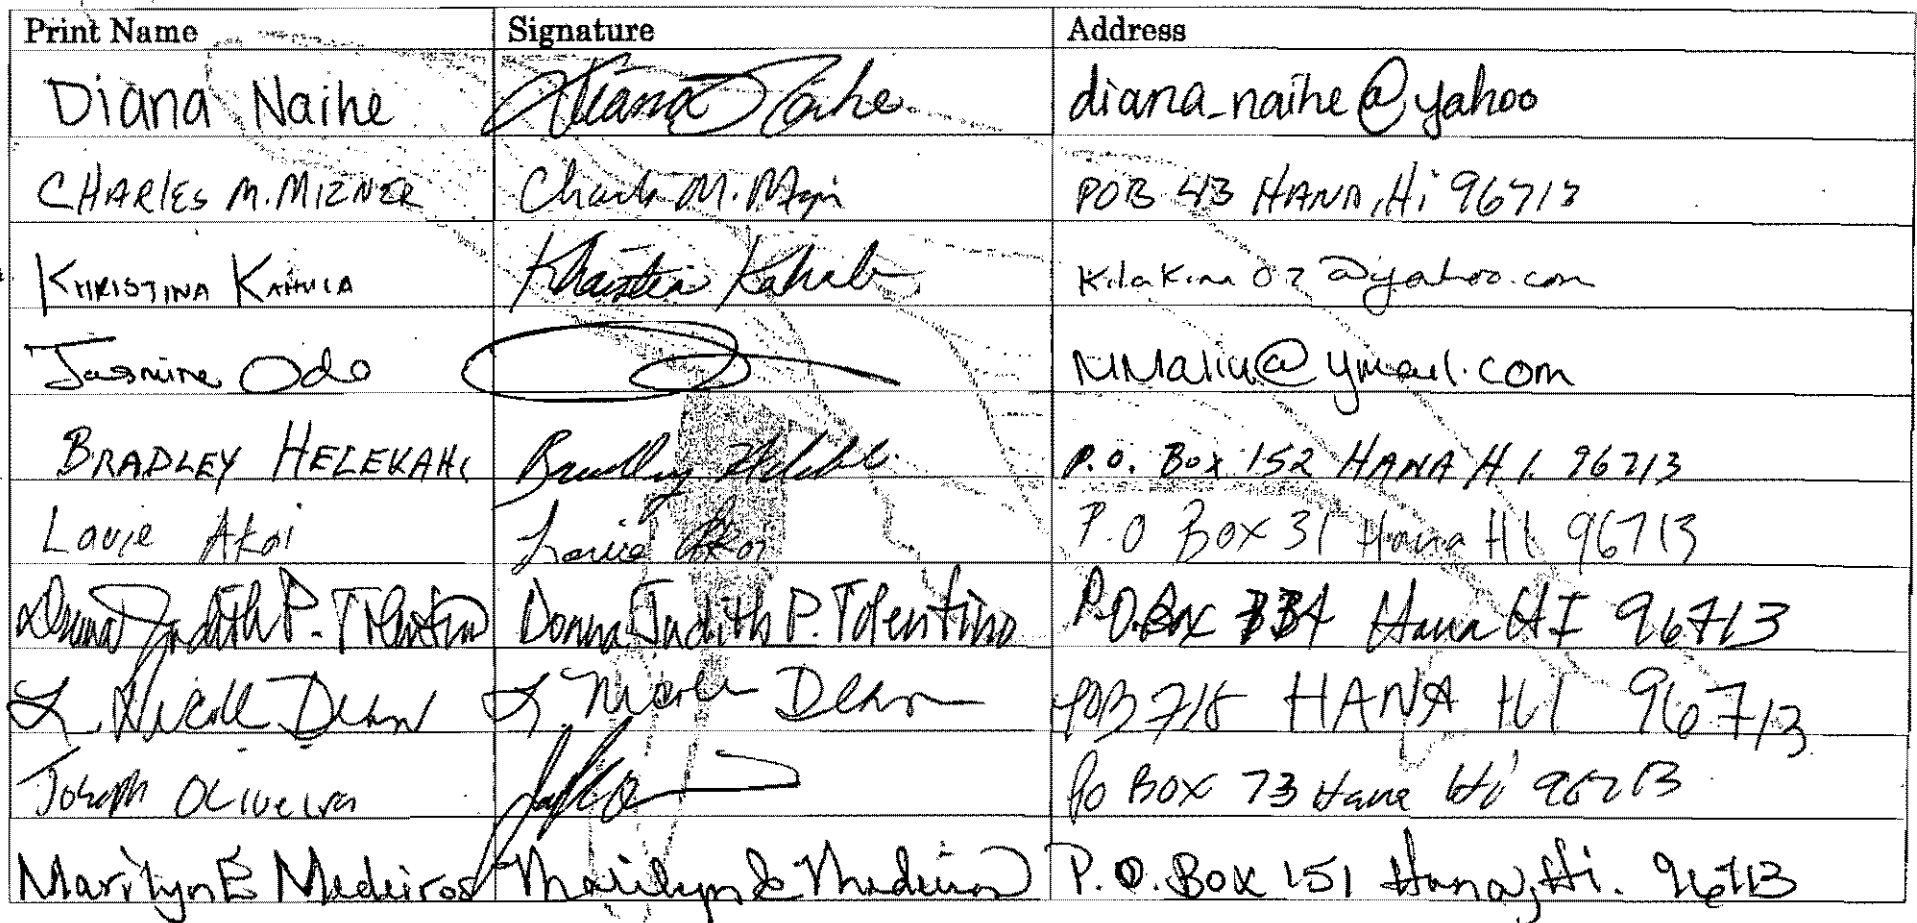 Print Name Signature Address
Diana Naihe Diana Naihe diana_naihe@yahoo
CHARLES M. MIZNER Charles M. POB 43 HANA, Hi 96713
KHRISTINA Khristina @yahoo.com
Jasmine Odo @ymail.com
BRADLEY HELEKAHI Bradley P.O. Box 152 HANA H.I. 96713
Louie Akoi Louie Akoi P.O Box 31 Hana HI 96713
Donna Judith P. Tolentino Donna Judith P. Tolentino P.O. Box Hana HI 96713
L. Nicole Dean L. Nicole Dean POB HANA HI 96713
Joseph Oliveira Po Box 73 Hana Hi 96713
Marilyn E Medeiros Marilyn E Medeiros P.O. Box 151 Hana, Hi. 96713